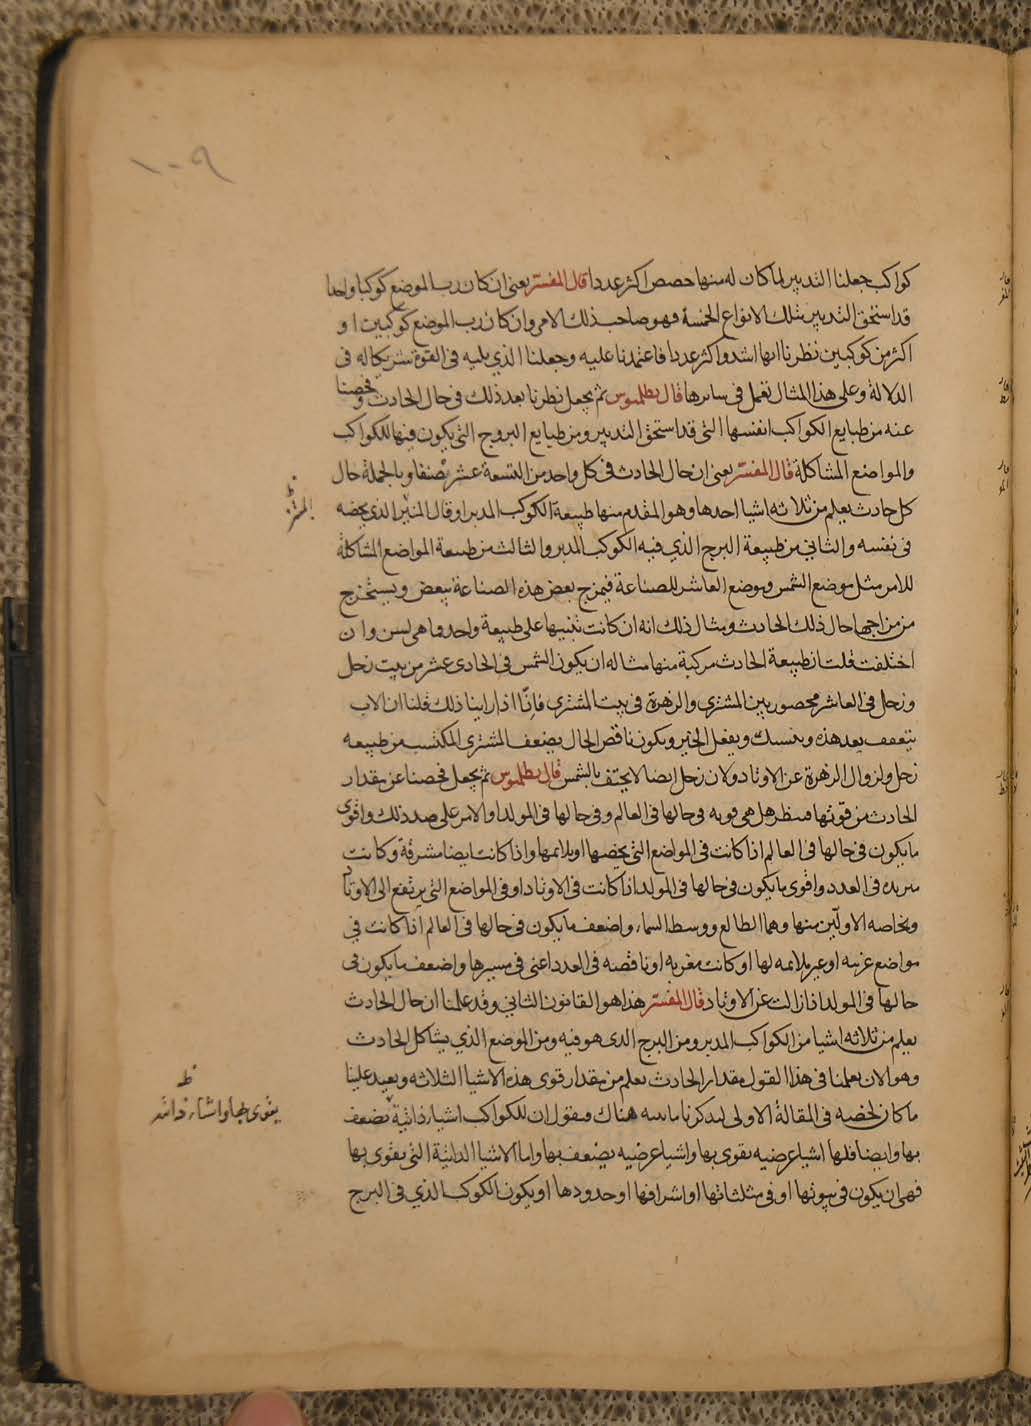 ١٠٩
كواكب جعلنا التدبير لما كان له منها حصص اكثر عددا قال المفسر يعنى ان كان رب الموضع كوكبا واحدا
قد استحق التدبير بتلك الانواع الخمسة فهو صاحب ذلك الامر وان كان رب الموضع كوكبين او
اكثر من كوكبين نظرنا ايها اشد واكثر عددا فاعتمدنا عليه وجعلنا الذي يليه فى القوة شريكا له فى
الدلالة وعلى هذا المثال نعمل فى سائرها قال بطلميوس ثم يجعل نظرنا بعد ذلك فى حال الحادث وفحصنا
عنه من طبايع الكواكب انفسها التى قد استحق التدبير ومن طبايع البروج التى يكون فيها للكواكب
والمواضع المشاكلة قال المفسر يعنى ان حال الحادث فى كل واحد من التسعة عشر صنفا وبالجملة حال
كل حادث يعلم من ثلاثه اشيا احدها وهو المقدم منها طبيعة الكوكب المدبر او قال المنير الذي يخصه
فى نفسه والثاني من طبيعة البرج الذي فيه الكوكب المدبر والثالث من طبيعة المواضع المشاكلة
للامر مثل موضع الشمس وموضع العاشر للصناعة فيمزج بعض هذه الصناعة ببعض ويستخرج
من مزاجها حال ذلك الحادث ومثال ذلك انه ان كانت ثلثيها على طبيعة واحد وان
اختلفت قلت ان طبيعة الحادث مركبة منها مثاله ان يكون الشمس فى الحادى عشر من بيت زحل
وزحل فى العاشر محصور بين المشتري والزهرة فى بيت المشتري فانّا اذا راينا ذلك قلنا ان الاب
يتعفف بعد هذه ويتنسك ويفعل الخير ويكون ناقص الحال بضعف المشترى المكتسب من طبيعه
زحل ولزوال الزهرة عن الاوتاد ولان زحل ايضا لا يحتف بالشمس قال بطلميوس ثم يجعل فحصنا عن مقدار
الحادث من قوتها فننظر هل هى قويه فى حالها فى العالم وفى حالها فى المولد او الامر على ضد ذلك واقوى
ما يكون فى حالها فى العالم اذا كانت فى المواضع التى يخصها او يلايمها واذا كانت ايضا مشرقة وكانت
سريعه فى العدد واقوى ما يكون فى حالها فى المولد اذا كانت فى الاوتاد او فى المواضع التى يرتفع الى الاوتاد
وبخاصه الاولّين منها وهما الطالع ووسط السماء واضعف ما يكون فى حالها فى العالم اذا كانت فى
مواضع غريبه او غير ملايمه لها او كانت مغربه او ناقصه فى العدد اعنى فى مسيرها واضعف ما يكون فى
حالها فى المولد اذا زالت عن الاوتاد قال المفسر هذا هو القانون الثاني وقد علمنا ان حال الحادث
يعلم من ثلاثه اشيا من الكواكب المدبر ومن البرج الذى هو فيه ومن الموضع الذي يشاكل الحادث
وهو الان يعلمنا فى هذا القول مقدار الحادث يعلم من مقدار قوى هذه الاشيا الثلاثه ويعيد علينا
ما كان لخصه فى المقالة الاولى ليذكرنا ما بينه هناك فيقول ان للكواكب اشيا ذاتية يضعف
بها وايضا فلها اشيا عرضيه يقوى بها واشيا عرضيه يضعف بها واما الاشيا الذاتية التى يقوى بها
فهى ان يكون فى بيوتها او فى مثلثاتها او اشرافها او حدودها او يكون الكوكب الذي فى البرج
المنير
ظ
يقوى بها واشيا ذاتيه